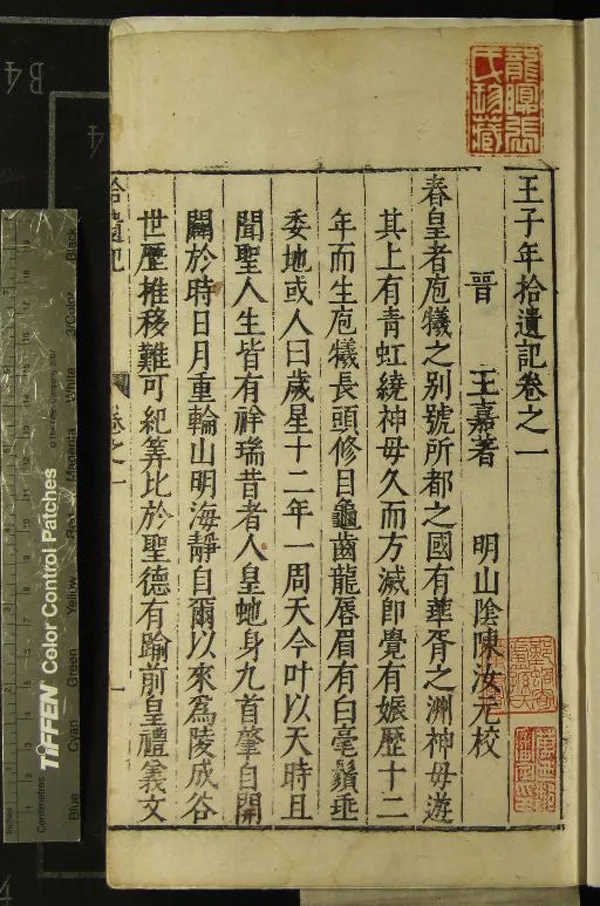 王子年拾遺記卷之一
晉 王嘉著 明山陰陳汝元校
春皇者庖犧之别號所都之國有華胥之洲神母遊
其上有青虹繞神母久而方滅即覺有娠歷十二
年而生庖犧長頭修目龜齒龍唇眉有白毫鬚垂
委地或人曰歲星十二年一周天今叶以天時且
聞聖人生皆有祥瑞昔者人皇蛇身九首肇自開
闢於時日月重輪山明海靜自爾以來爲陵成谷
世歷推移難可紀筭比於聖德有踰前皇禮義文
拾遺記 卷之一 一
龍
張
氏珍藏
B4
4
4
TIFFEN Color Control Patches
© The Tiffen Company, 2007
Centimetres
Inches
Blue
Cyan
Green
Yellow
Red
Magenta
White
3/Color
Black